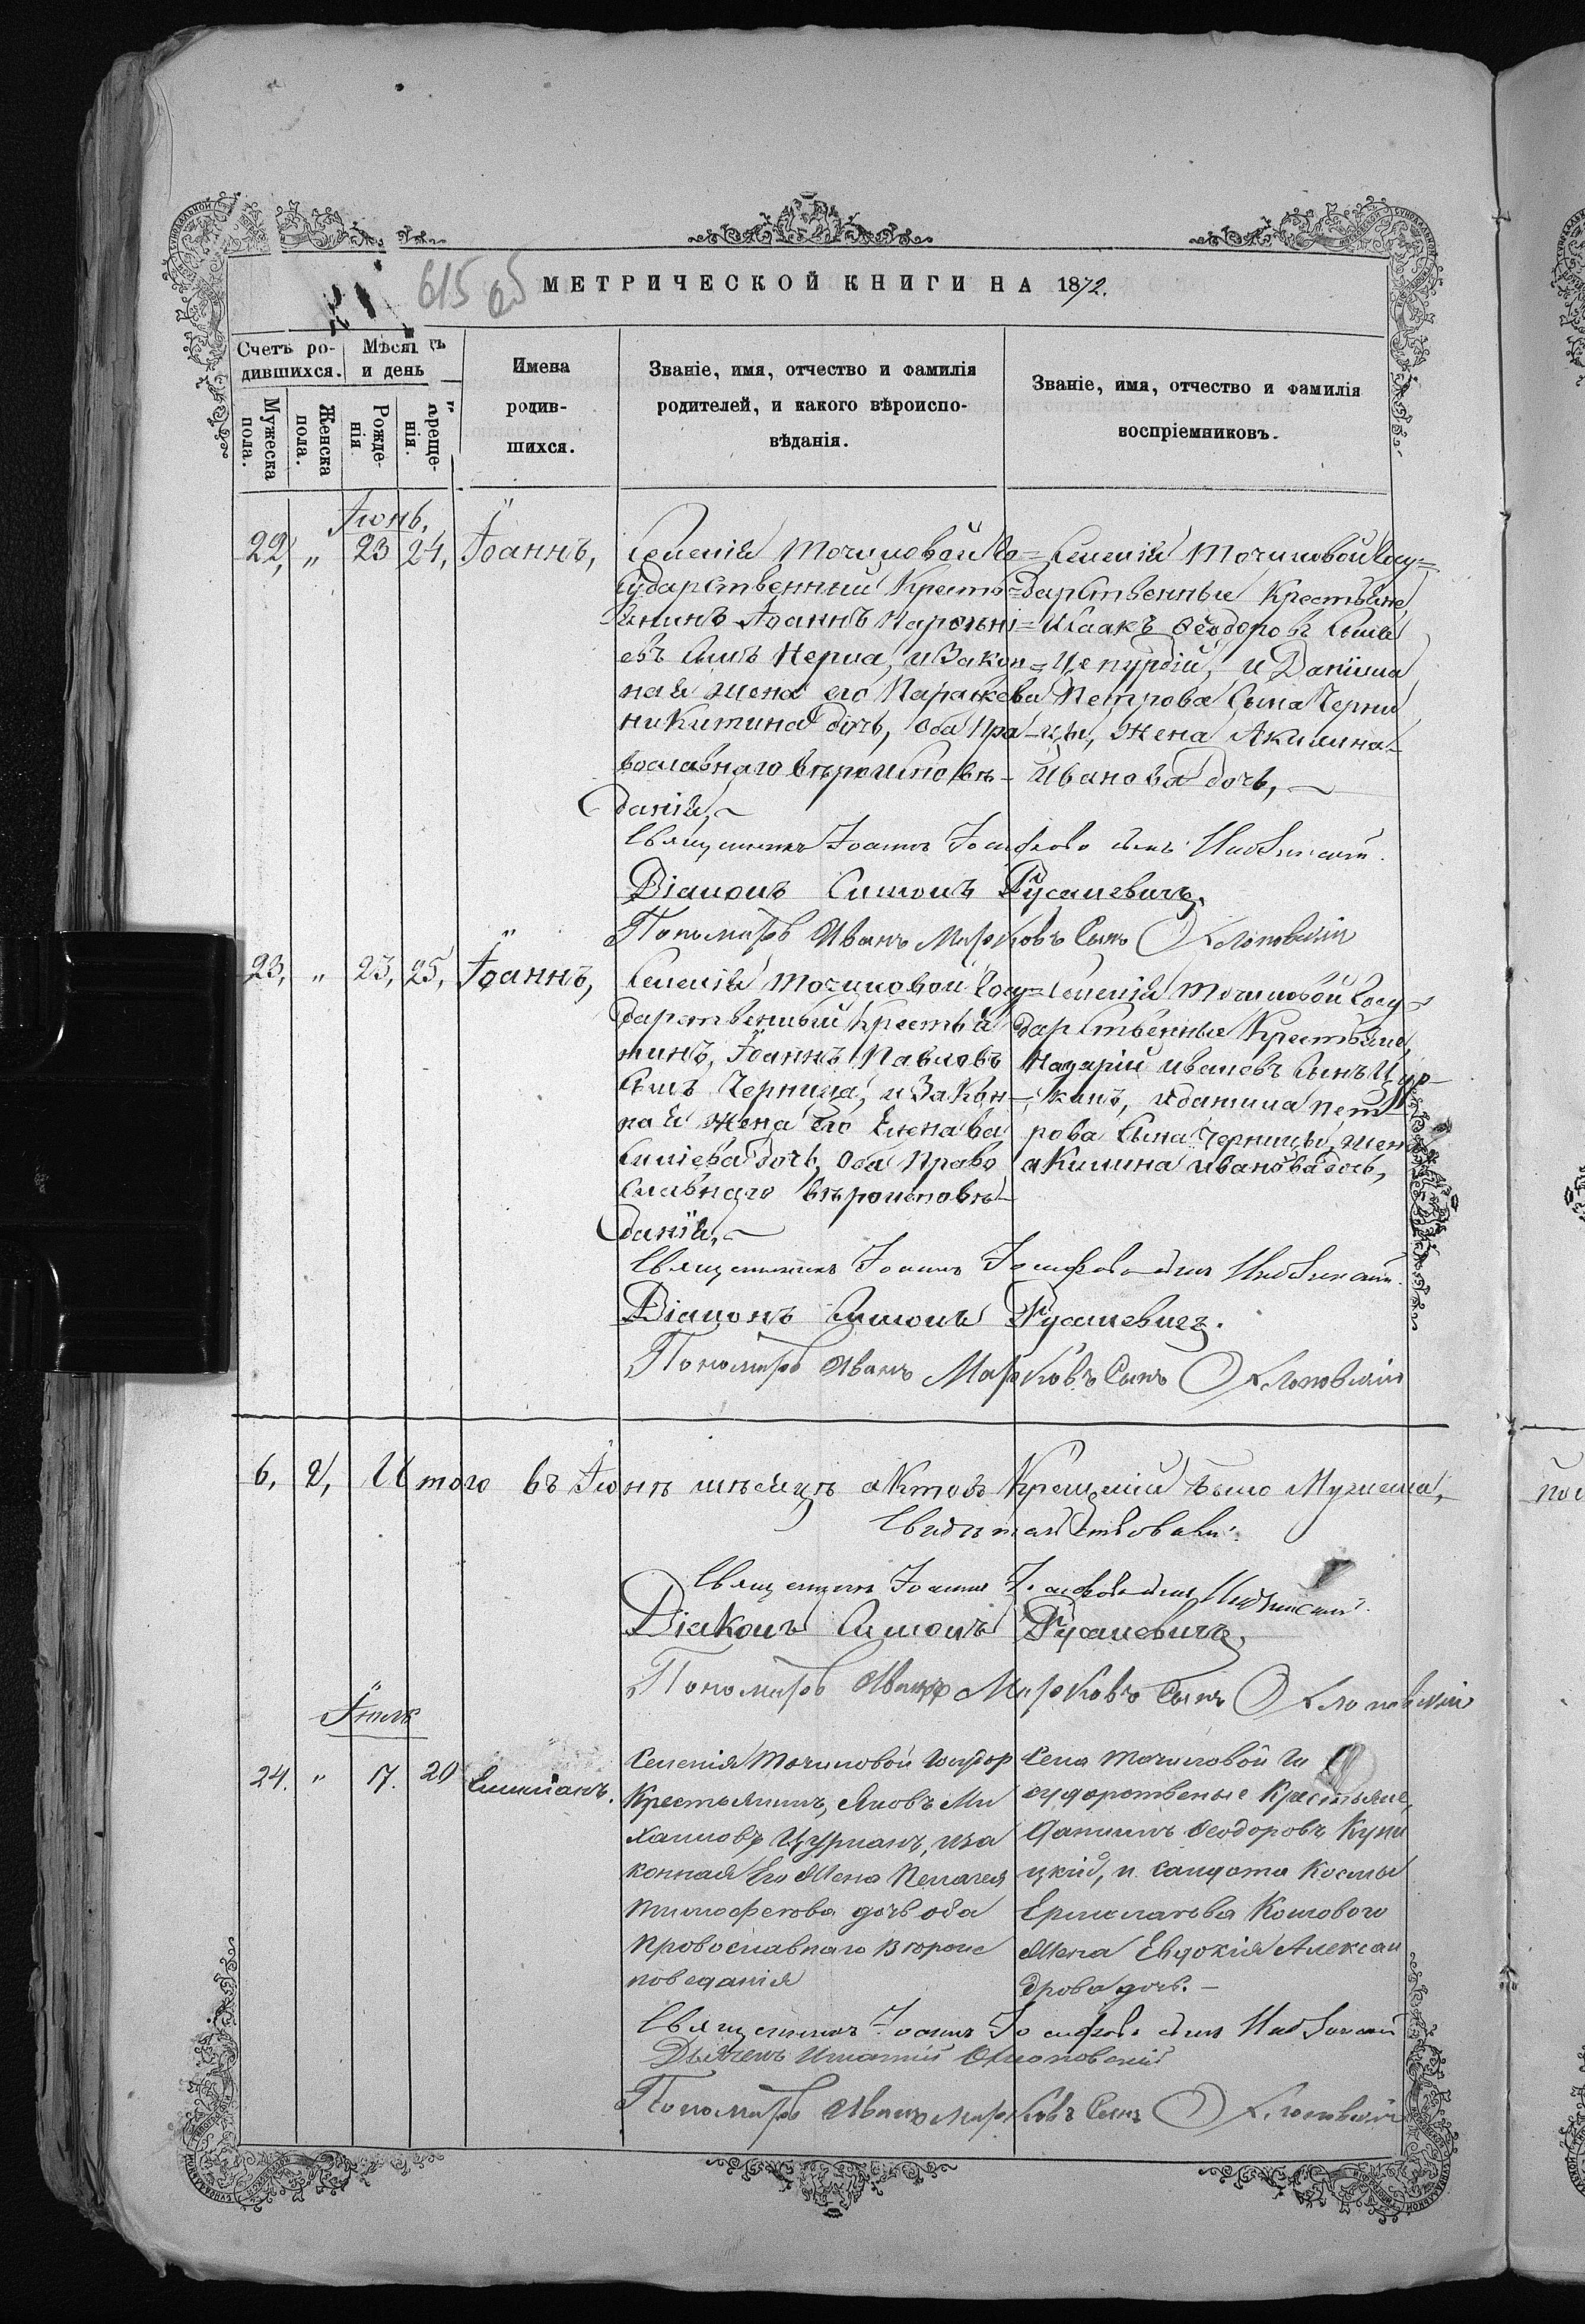 615 об
МЕТРИЧЕСКОЙ КНИГИ НА 1872.
Счетъ ро-
дившихся.
Мѣсяцъ
и день
Мужеска
пола.
Женска
пола.
Рожде-
нія
креще-
нія.
Имена
родив-
шихся.
Званіе, имя, отчество и фамилія
родителей, и какого вѣроиспо-
вѣданія.
Званіе, имя, отчество и фамилія
воспріемниковъ.
Іюнь,
22, " 23 24, Іоаннъ,
Селенія Точиловой Го=
сударственный Кресть=
янинъ Іоаннъ
евъ Сынъ Черна, и Закон=
ная жена его Параскева
Никитина дочь, Оба Пра-
вославнаго вѣроисповѣ-
данія,
Селенія Точиловой Госу=
дарственные Крестьяне,
Исаакъ Ѳеодоровъ Сынъ
и Даніила
Петрова Сына Черни
цы, жена Акилина-
Иванова дочь,
Священникъ Іоаннъ Іосифовъ сынъ
Діаконъ Симонъ Русаневичъ.
Пономарь Иванъ Марковъ Сынъ Охлоповскій
23, " 23, 25, Іоаннъ,
Селенія Точиловой Госу=
дарственный Крестья
нинъ, Іоаннъ Павловъ
Сынъ Черница, и Закон-
ная жена Его Елена Ва
силіева дочь, Оба Право
славнаго вѣроисповѣ-
данія,
Селенія Точиловой Госу=
дарственные Крестьяне,
Назарій Ивановъ Сынъ Цур-
канъ, и данила Пет
рова Сына Черницы, жена
Акилина Иванова дочь,
Священникъ Іоаннъ Іосифовъ сынъ
Діаконъ Симонъ Русаневичъ.
Пономарь Иванъ Марковъ Сынъ Охлоповскій
6, 2, Итого въ Іюнѣ мѣсяцѣ актовъ Крещеній было
Свидѣтельствовали:
Священникъ Іоаннъ Іосифовъ сынъ
Діаконъ Симонъ Русаневичъ
Пономарь Иванъ Марковъ Сынъ Охлоповскій
Іюль
24. " 17. 20 Емиліанъ.
Селенія Точиловой Госудор
Крестьянинъ, Яковъ Ми
хаиловъ Цурканъ, иза
конная Его Жена Пелагея
Тимофеева дочь оба
Провославнаго Вѣроис
поведанія
Села Точиловой Го
сударственые Крестьяне,
Даниилъ Ѳеодоровъ Купи
цкій, и солдата Космы
Ермолаева Кошового
Жена Евдокія Алексан
дрова дочь.-
Священникъ Іоаннъ Іосифовъ сынъ
Дьячекъ Игнатій Охлоповскій
Пономарь Иванъ Марковъ Сынъ Охлоповскій